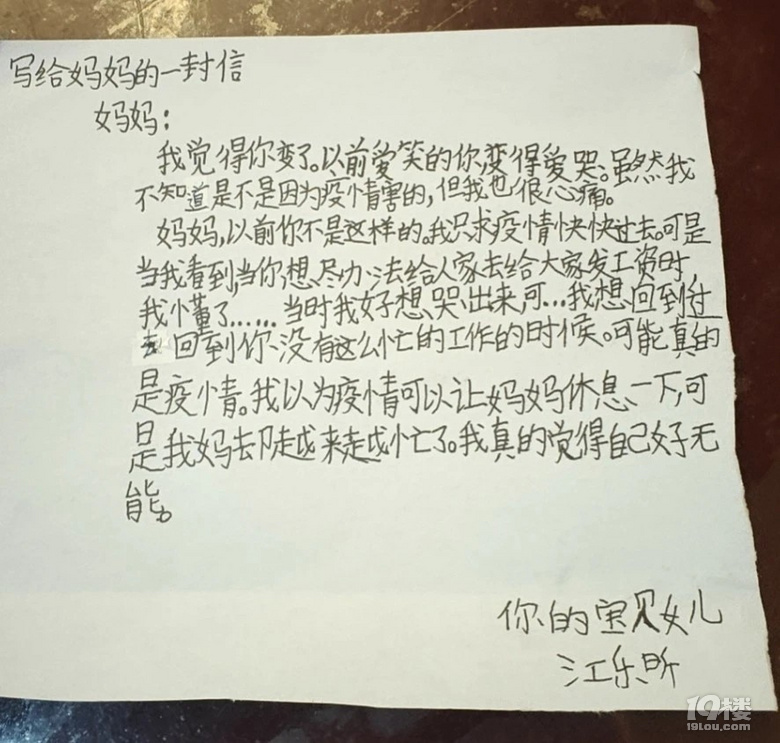 写给妈妈的一封信
妈妈：
我觉得你变了。以前爱笑的你变得爱哭。虽然我
不知道是不是因为疫情害的，但我也很心痛。
妈妈，以前你不是这样的。我只求疫情快快过去。可是
当我看到，当你想尽办法给人家去给大家发工资时，
我懂了……当时我好想哭出来，可…我想回到过
去回到你没有这么忙的工作的时候。可能真的
是疫情。我以为疫情可以让妈妈休息一下，可
是我妈去却越来越忙了。我真的觉得自己好无
能。
你的宝贝女儿
江乐昕
19楼
19lou.com